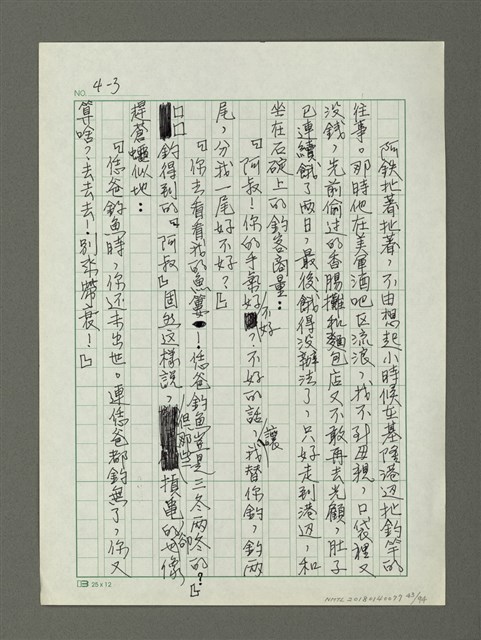 NO. 4-3
阿鉄扯著扯著，不由想起小時候在基隆港边扯釣竿的
往事。那時他在美軍酒吧区流浪，找不到母親，口袋裡又
没錢，先前偷过的香腸攤和麵包店又不敢再去光顧，肚子
已連續餓了两日，最後餓得没辦法了，只好走到港边，和
坐在石碇上的釣客商量：
「阿叔！你的手氣好不好？不好的話，讓我替你釣，釣两
尾，分我一尾好不好？」
「你去看看我的魚簍！恁爸釣魚豈是三冬两冬的？」
釣得到的「阿叔」固然这樣說，但那些損龜的却像
趕蒼蠅似地：
「恁爸釣魚時，你还未出世。連恁爸都釣無了，你又
算啥？去去去！別來帶衰！」
25x12
NMTL 20180140077 43/94